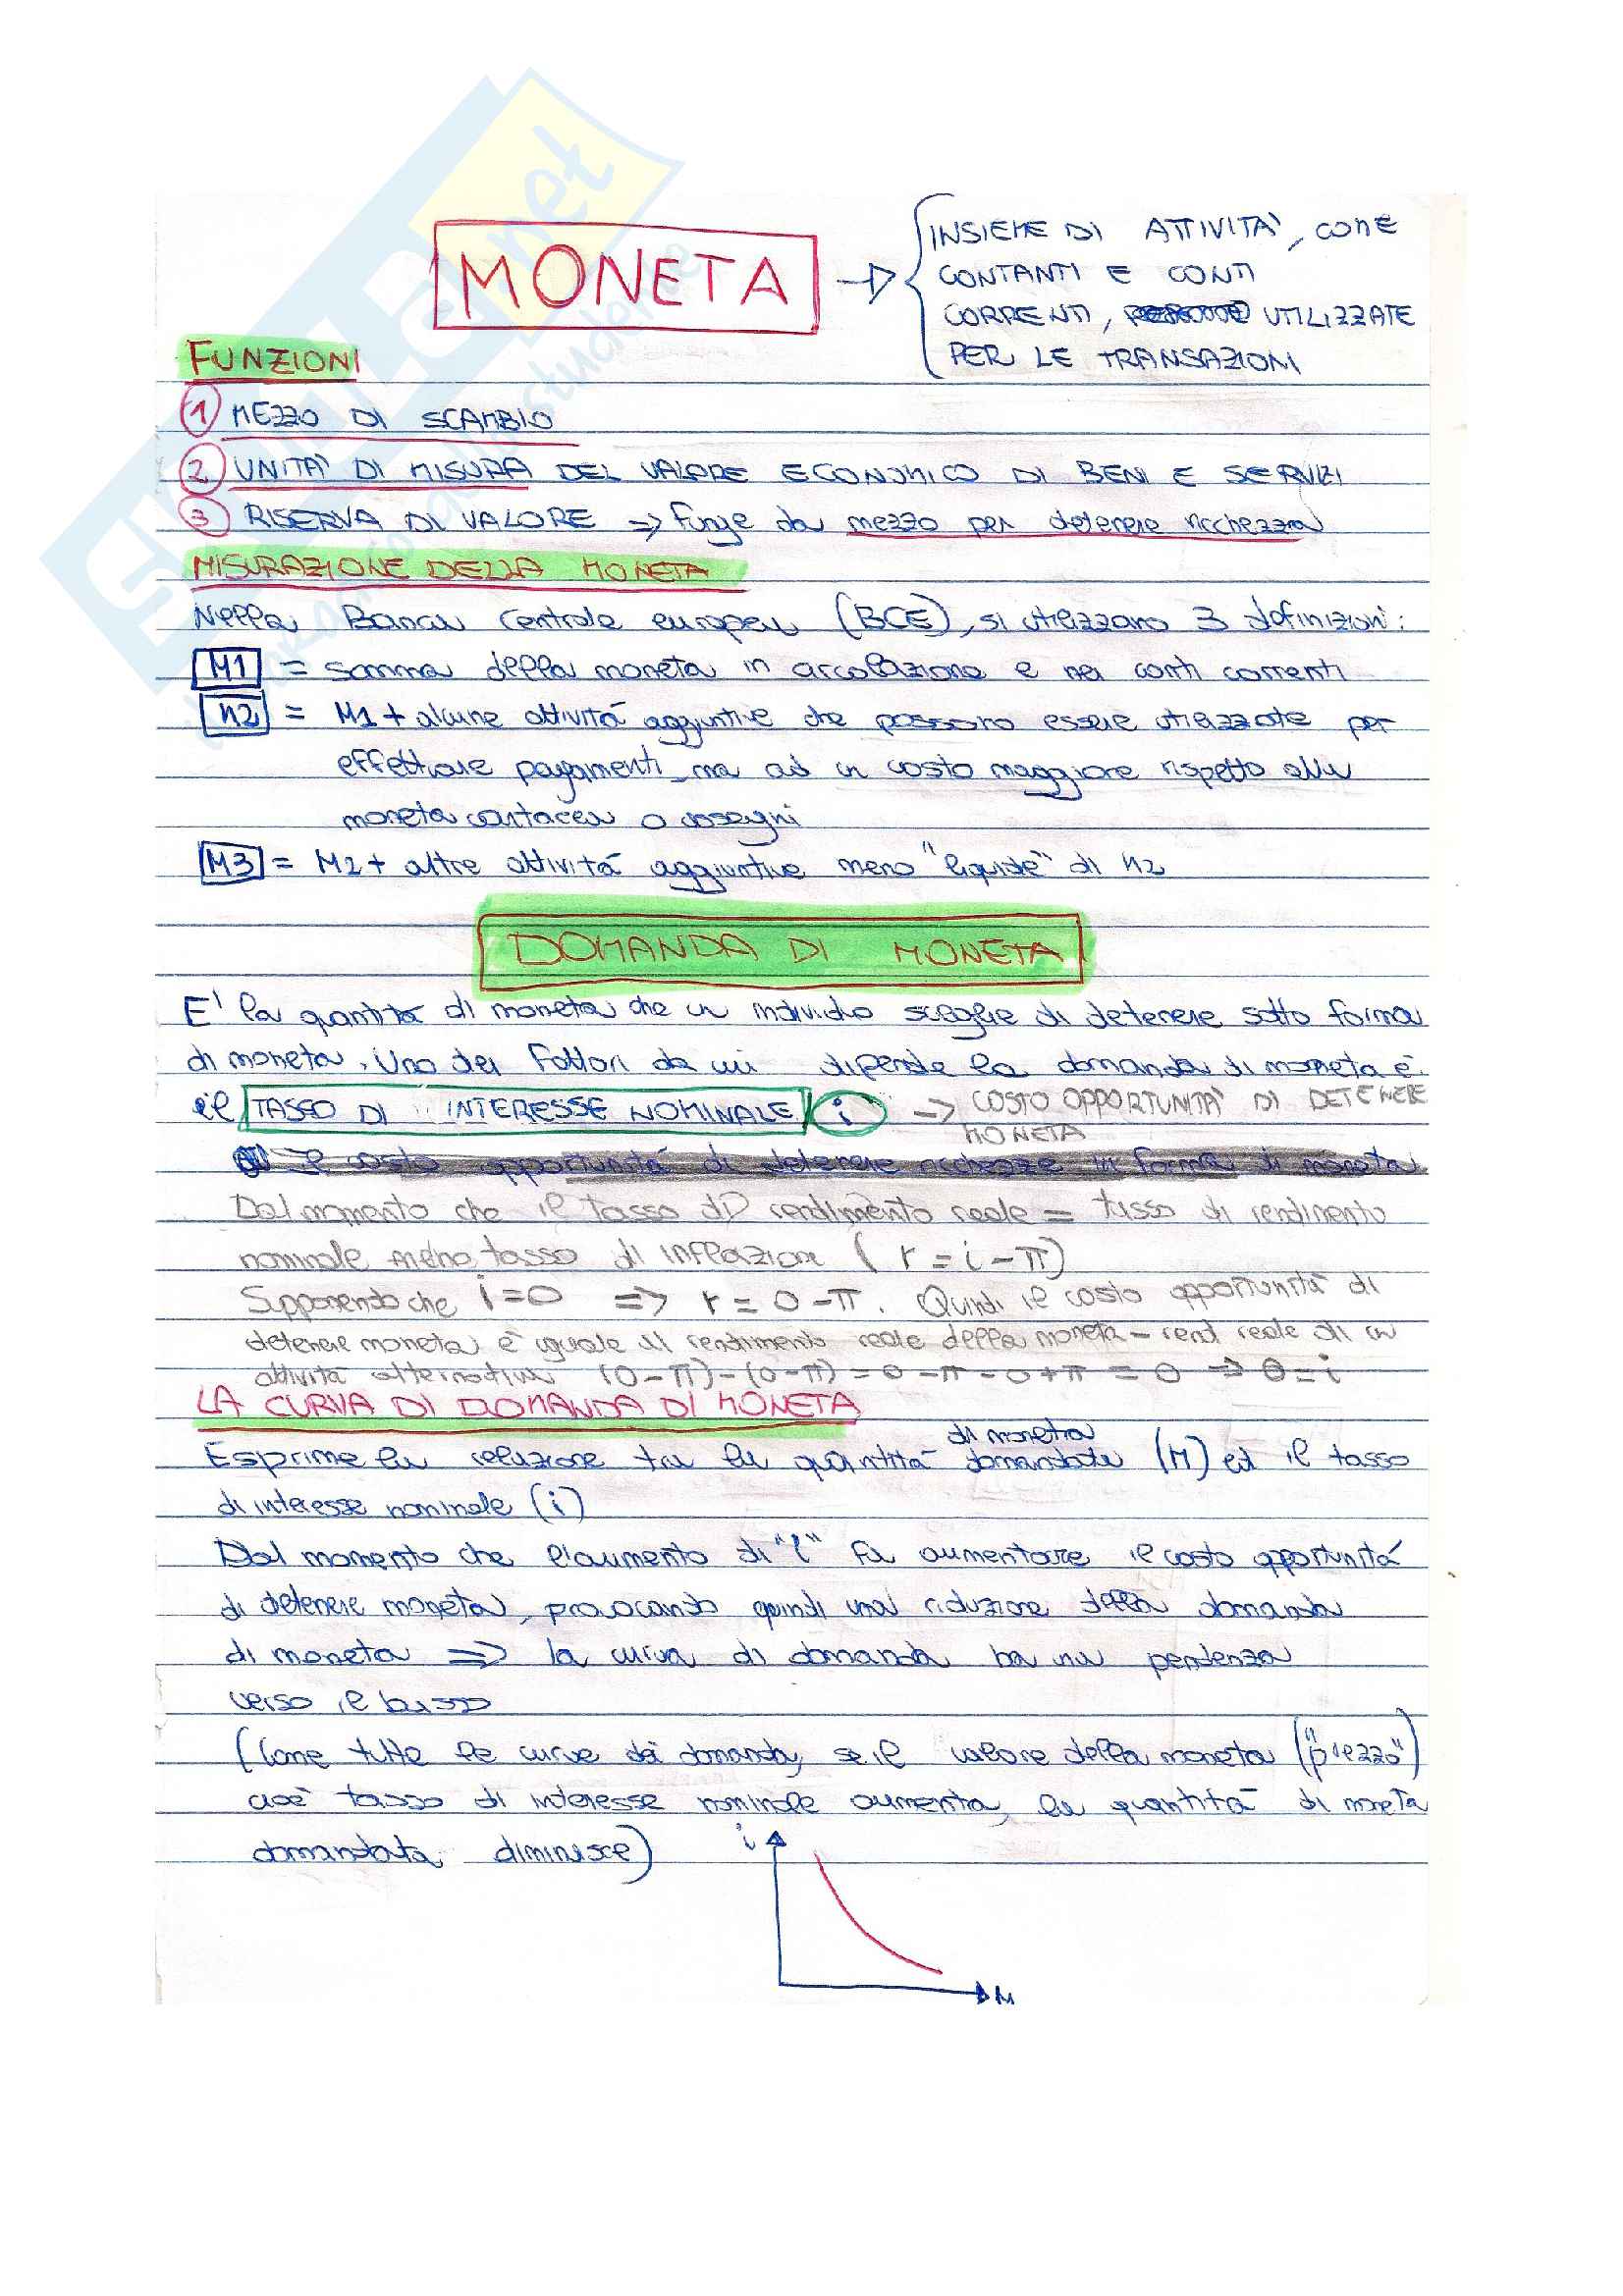 MONETA
INSIEME DI ATTIVITA', COME
CONTANTI E CONTI
CORRENTI, UTILIZZATE
PER LE TRANSAZIONI
FUNZIONI
1 MEZZO DI SCAMBIO
2 UNITA' DI MISURA DEL VALORE ECONOMICO DI BENI E SERVIZI
3 RISERVA DI VALORE => funge da mezzo per detenere ricchezza
MISURAZIONE DELLA MONETA
Nella Banca Centrale europea (BCE), si utilizzano 3 definizioni:
M1 = somma della moneta in circolazione e nei conti correnti
M2 = M1 + alcune attività aggiuntive che possono essere utilizzate per
effettuare pagamenti, ma ad un costo maggiore rispetto alla
moneta contacea o assegni
M3 = M2 + altre attività aggiuntive meno "liquide" di M2
DOMANDA DI MONETA
E' la quantità di moneta che un individuo sceglie di detenere sotto forma
di moneta. Uno dei fattori da cui dipende la domanda di moneta è
il TASSO DI INTERESSE NOMINALE i => COSTO OPPORTUNITA' DI DETENERE
MONETA
il costo opportunità di detenere ricchezze in forma di moneta
Dal momento che il tasso di rendimento reale = tasso di rendimento
nominale meno tasso di inflazione ( r = i - π )
Supponendo che i=0 => r = 0 - π. Quindi il costo opportunità di
detenere moneta è uguale al rendimento reale della moneta - rend reale di un
attività alternativa (0-π)-(0-π) = 0-π-0+π = 0 => 0=i
LA CURVA DI DOMANDA DI MONETA
Esprime la relazione tra la quantità di moneta domandata (M) ed il tasso
di interesse nominale (i)
Dal momento che l'aumento di "i" fa aumentare il costo opportunità
di detenere moneta, provocando quindi una riduzione della domanda
di moneta => la curva di domanda ha una pendenza
verso il basso
(Come tutte le curve di domanda, se il valore della moneta ("prezzo")
cioè tasso di interesse nominale aumenta, la quantità di moneta
domandata diminuisce)
i
M